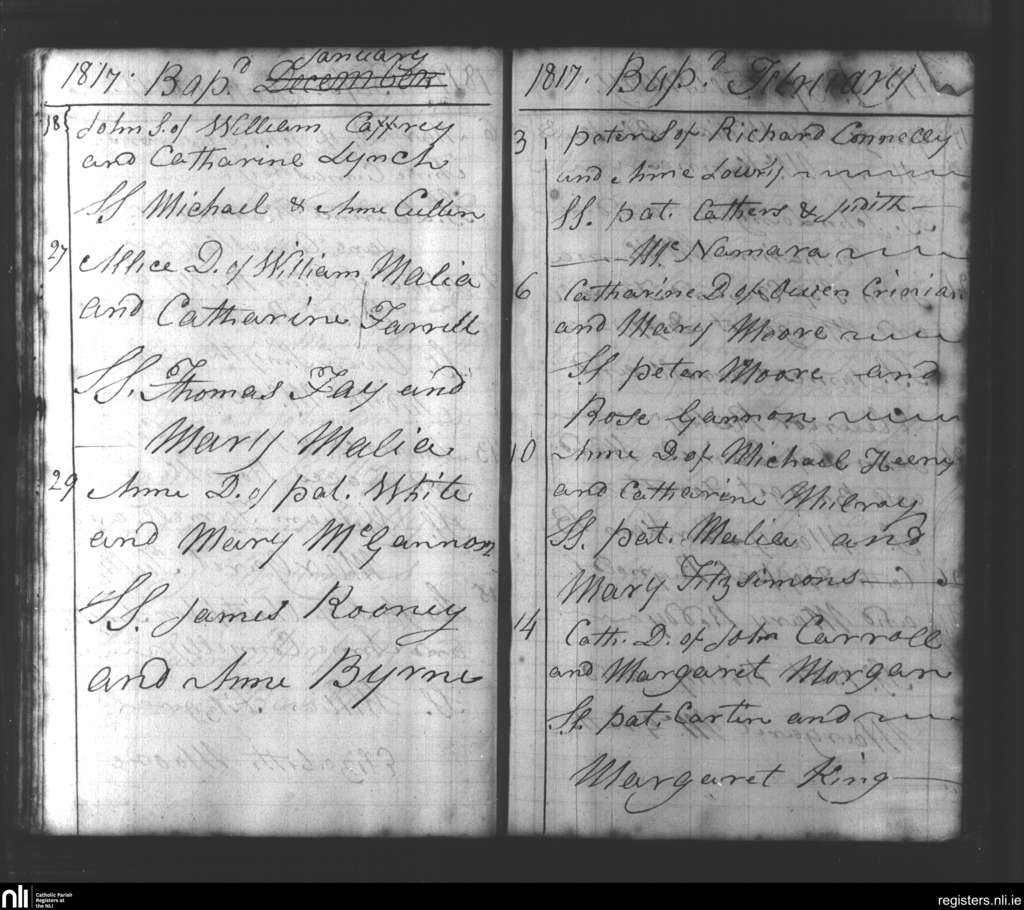 1817. Bap.d January
December
18 John S. of William Caffrey
and Catharine Lynch
SS Michael & Anne Cullin
27 Allice D. of William Malia
and Catharine Farrell
SS. Thomas Fay and
Mary Malia
29 Anne D. of pat. White
and Mary McGannon
SS. James Rooney
and Anne Byrne
1817. Bap.d February
3 peter S of Richard Connelly
and Anne Lowry
SS. pat. Cathers & Judith
Mc Namara
6 Catharine D. of Owen Crinian
and Mary Moore
SS peter Moore and
Rose Gannon
10 Anne D. of Michael Heeny
and Catharine Milroy
SS. pat. Malia and
Mary Fitzsimons
14 Cath. D. of John Carroll
and Margaret Morgan
SS. pat. Cartin and
Margaret King
nli
Catholic Parish
Registers at
the NLI
registers.nli.ie